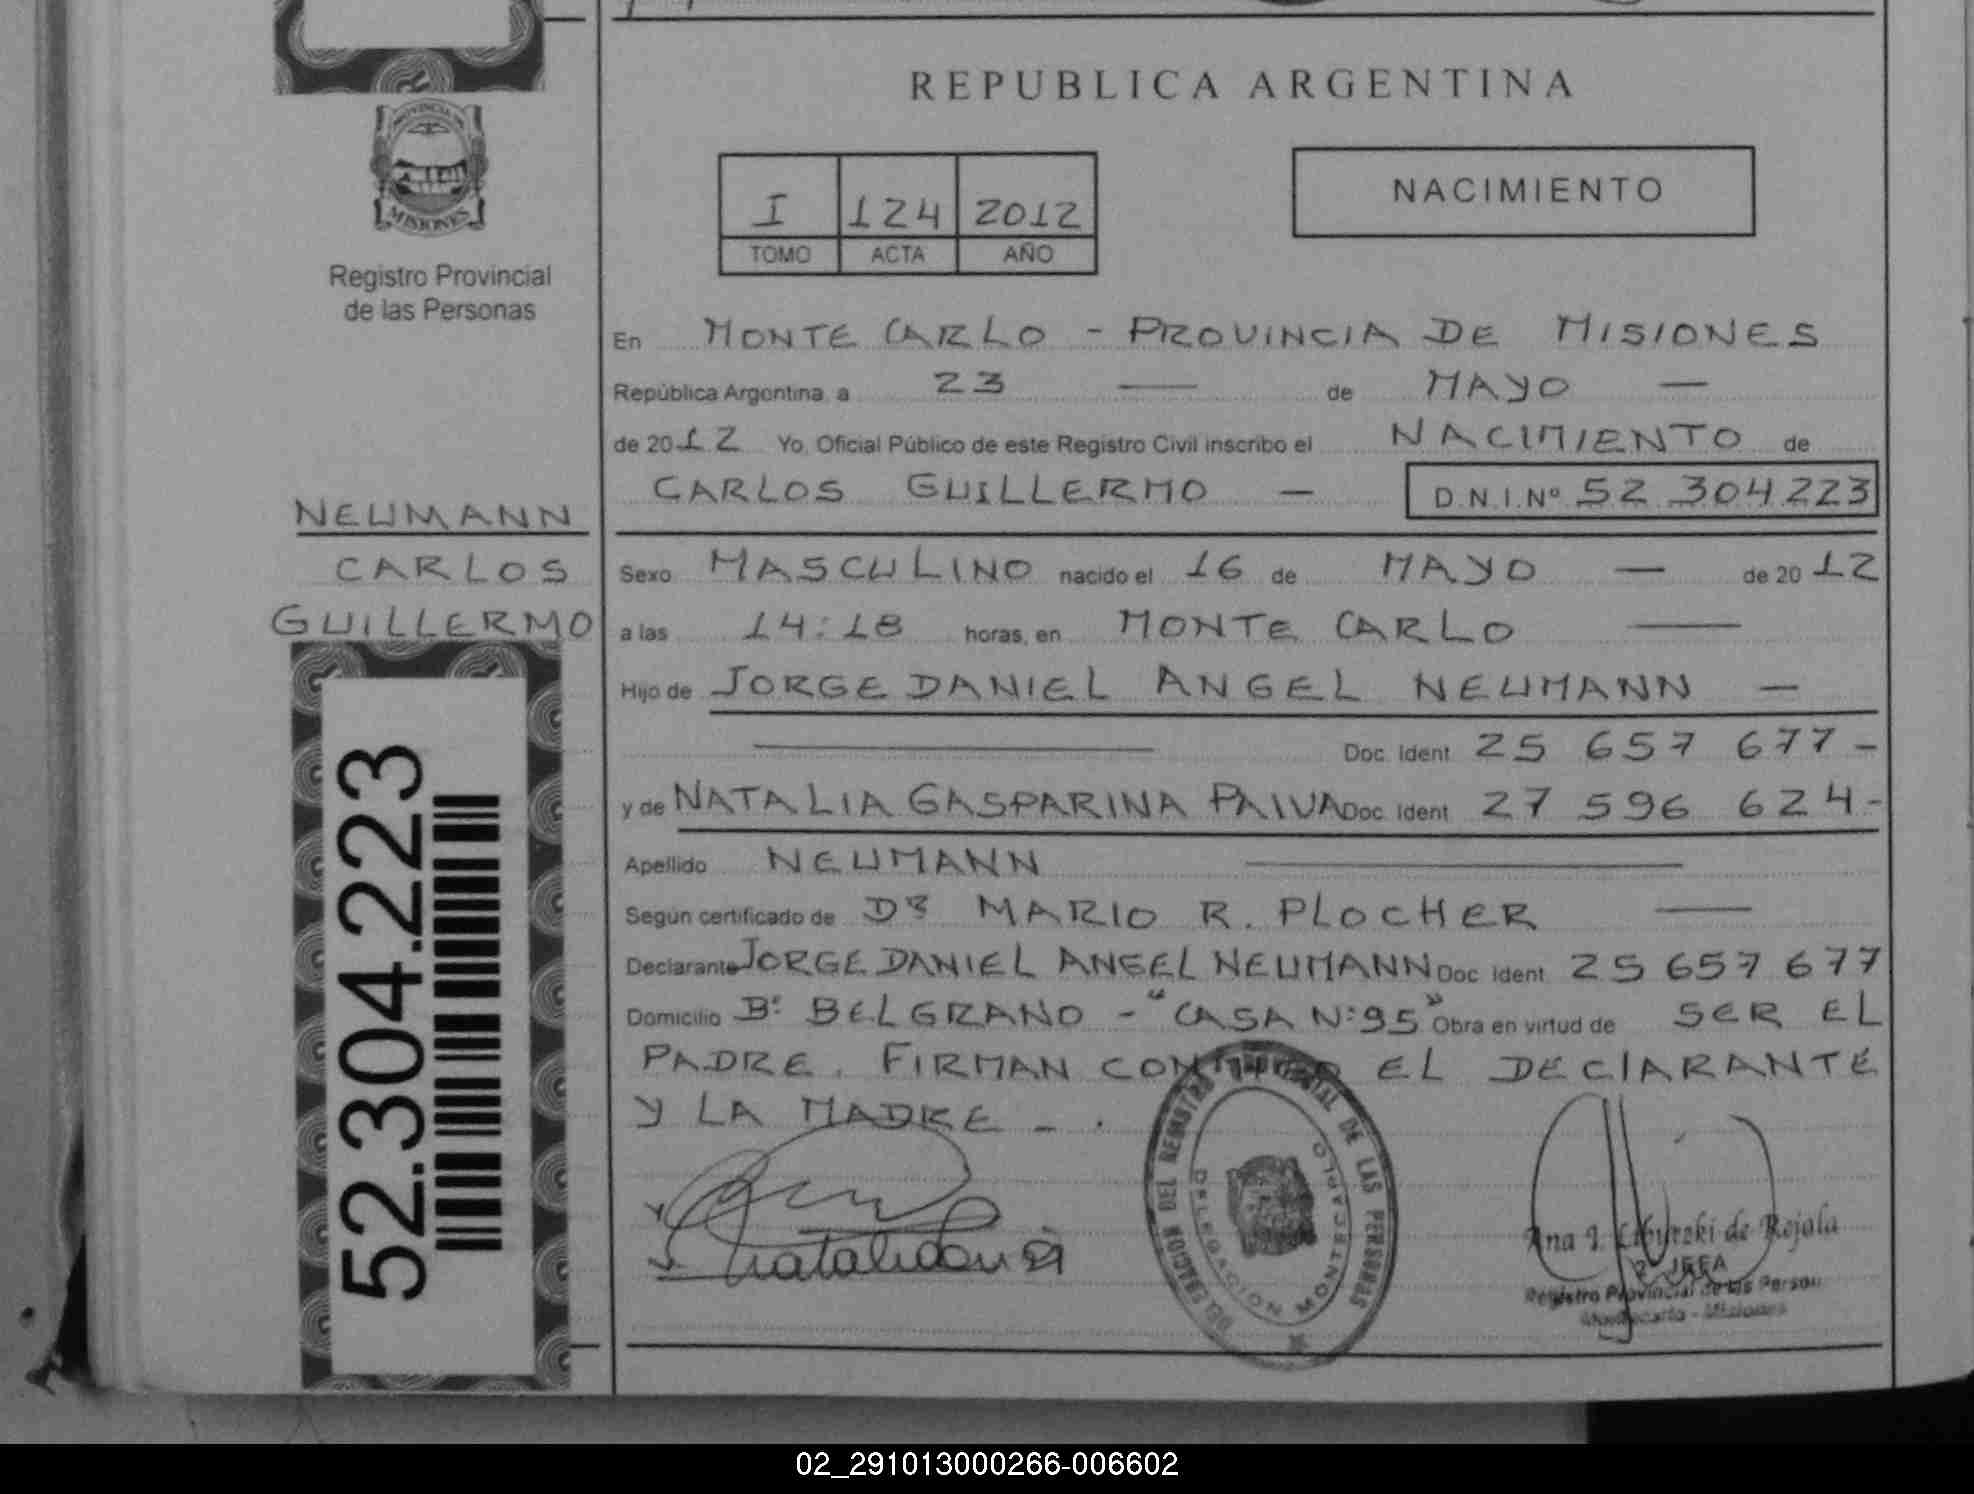 REPUBLICA ARGENTINA
PROVINCIA DE
MISIONES
Registro Provincial
de las Personas
I 124 2012
TOMO ACTA AÑO
NACIMIENTO
En MONTE CARLO - PROVINCIA DE MISIONES
República Argentina, a 23 — de MAYO —
de 2012 Yo, Oficial Público de este Registro Civil inscribo el NACIMIENTO de
CARLOS GUILLERMO — D.N.I.Nº 52 304 223
NEUMANN
CARLOS
GUILLERMO
Sexo MASCULINO nacido el 16 de MAYO — de 2012
a las 14:18 horas, en MONTE CARLO —
Hijo de JORGE DANIEL ANGEL NEUMANN —
— Doc. Ident. 25 657 677 -
y de NATALIA GASPARINA PAIVA Doc. Ident. 27 596 624 -
Apellido NEUMANN —
Según certificado de Dr MARIO R. PLOCHER —
Declarante JORGE DANIEL ANGEL NEUMANN Doc. Ident. 25 657 677
Domicilio Bº BELGRANO - "CASA Nº95" Obra en virtud de SER EL
PADRE. FIRMAN EL DECLARANTE
Y LA MADRE - .
52.304.223
DEL REGISTRO PROVINCIAL DE LAS PERSONAS
DELEGACION MONTECARLO
Ana I. de Rojala
JEFA
Registro Provincial de las Person
Montecarlo - Misiones
02_291013000266-006602